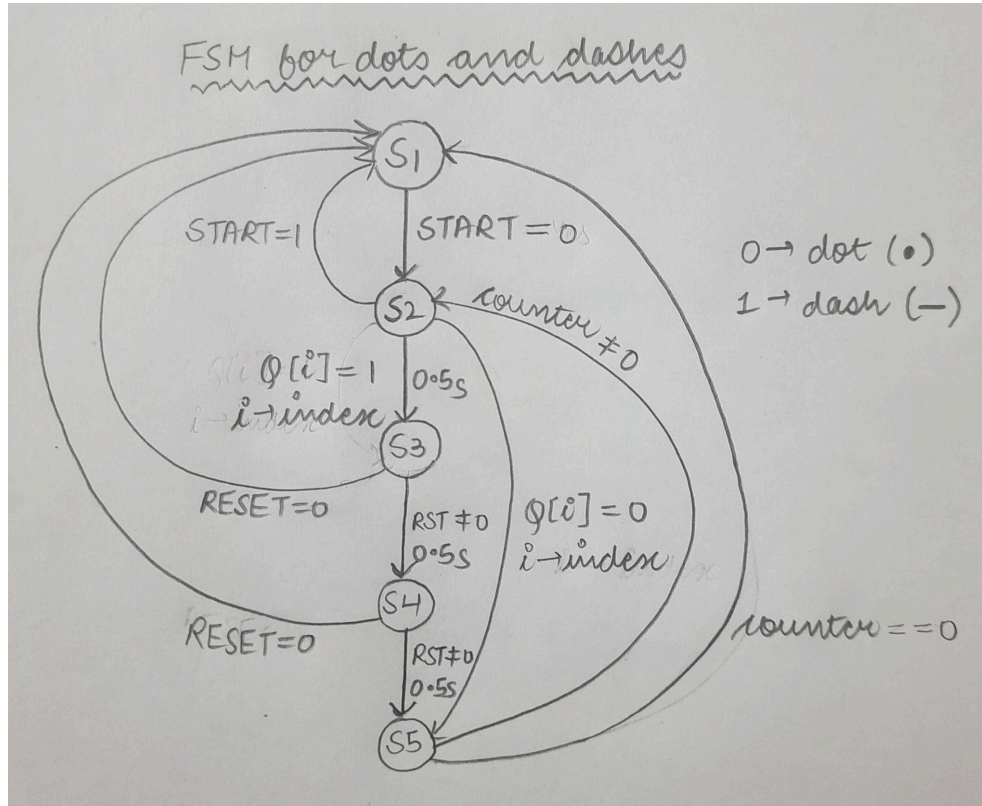 FSM for dots and dashes
S1
START=1
START = 0
0 → dot (•)
1 → dash (—)
S2
counter ≠ 0
Q[i] = 1
i → index
0.5s
S3
RESET=0
RST ≠ 0
0.5s
Q[i] = 0
i → index
S4
RESET=0
RST ≠ 0
0.5s
counter == 0
S5